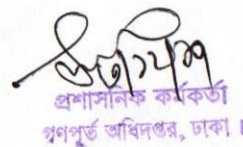 প্রশাসনিক কর্মকর্তা
গণপূর্ত অধিদপ্তর, ঢাকা।